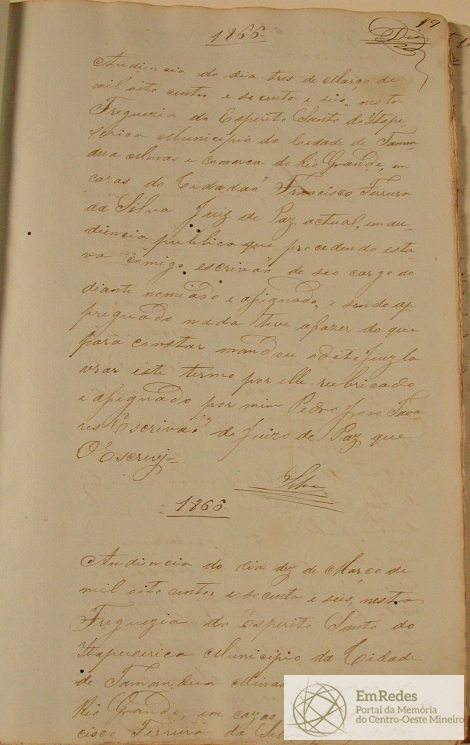 17
1866
Audiencia do dia tres de Março de
mil oito centos e secenta e seis, nesta
Freguezia do Espirito Santo de Itape
serica Municipio da Cidade de Taman
dua Minas e comarca do Rio Grande, em
cazas do Cidadaõ Francisco Ferreira
da Silva Juiz de Paz actual, em au
diencia publica que procedendo esta
va comigo escrivaõ de seo cargo ao
diante nomiado e assignado, e sendo ap
pregoado nada teve afazer do que
para constar mandou o dito Juiz la
vrar este termo por elle rubricado
e assignado por mim Pedro Jose Tava
res Escrivaõ do Juizo de Paz que
O Escrevj=
Silva
1866
Audiencia do dia dez de Março de
mil oito centos e secenta e seis, nesta
Freguezia do Espirito Santo do
Itapecerica Municipio da Cidade
de Tamandua Minas
Rio Grande em cazas
cisco Ferreira da Sil
EmRedes
Portal da Memória
do Centro-Oeste Mineiro